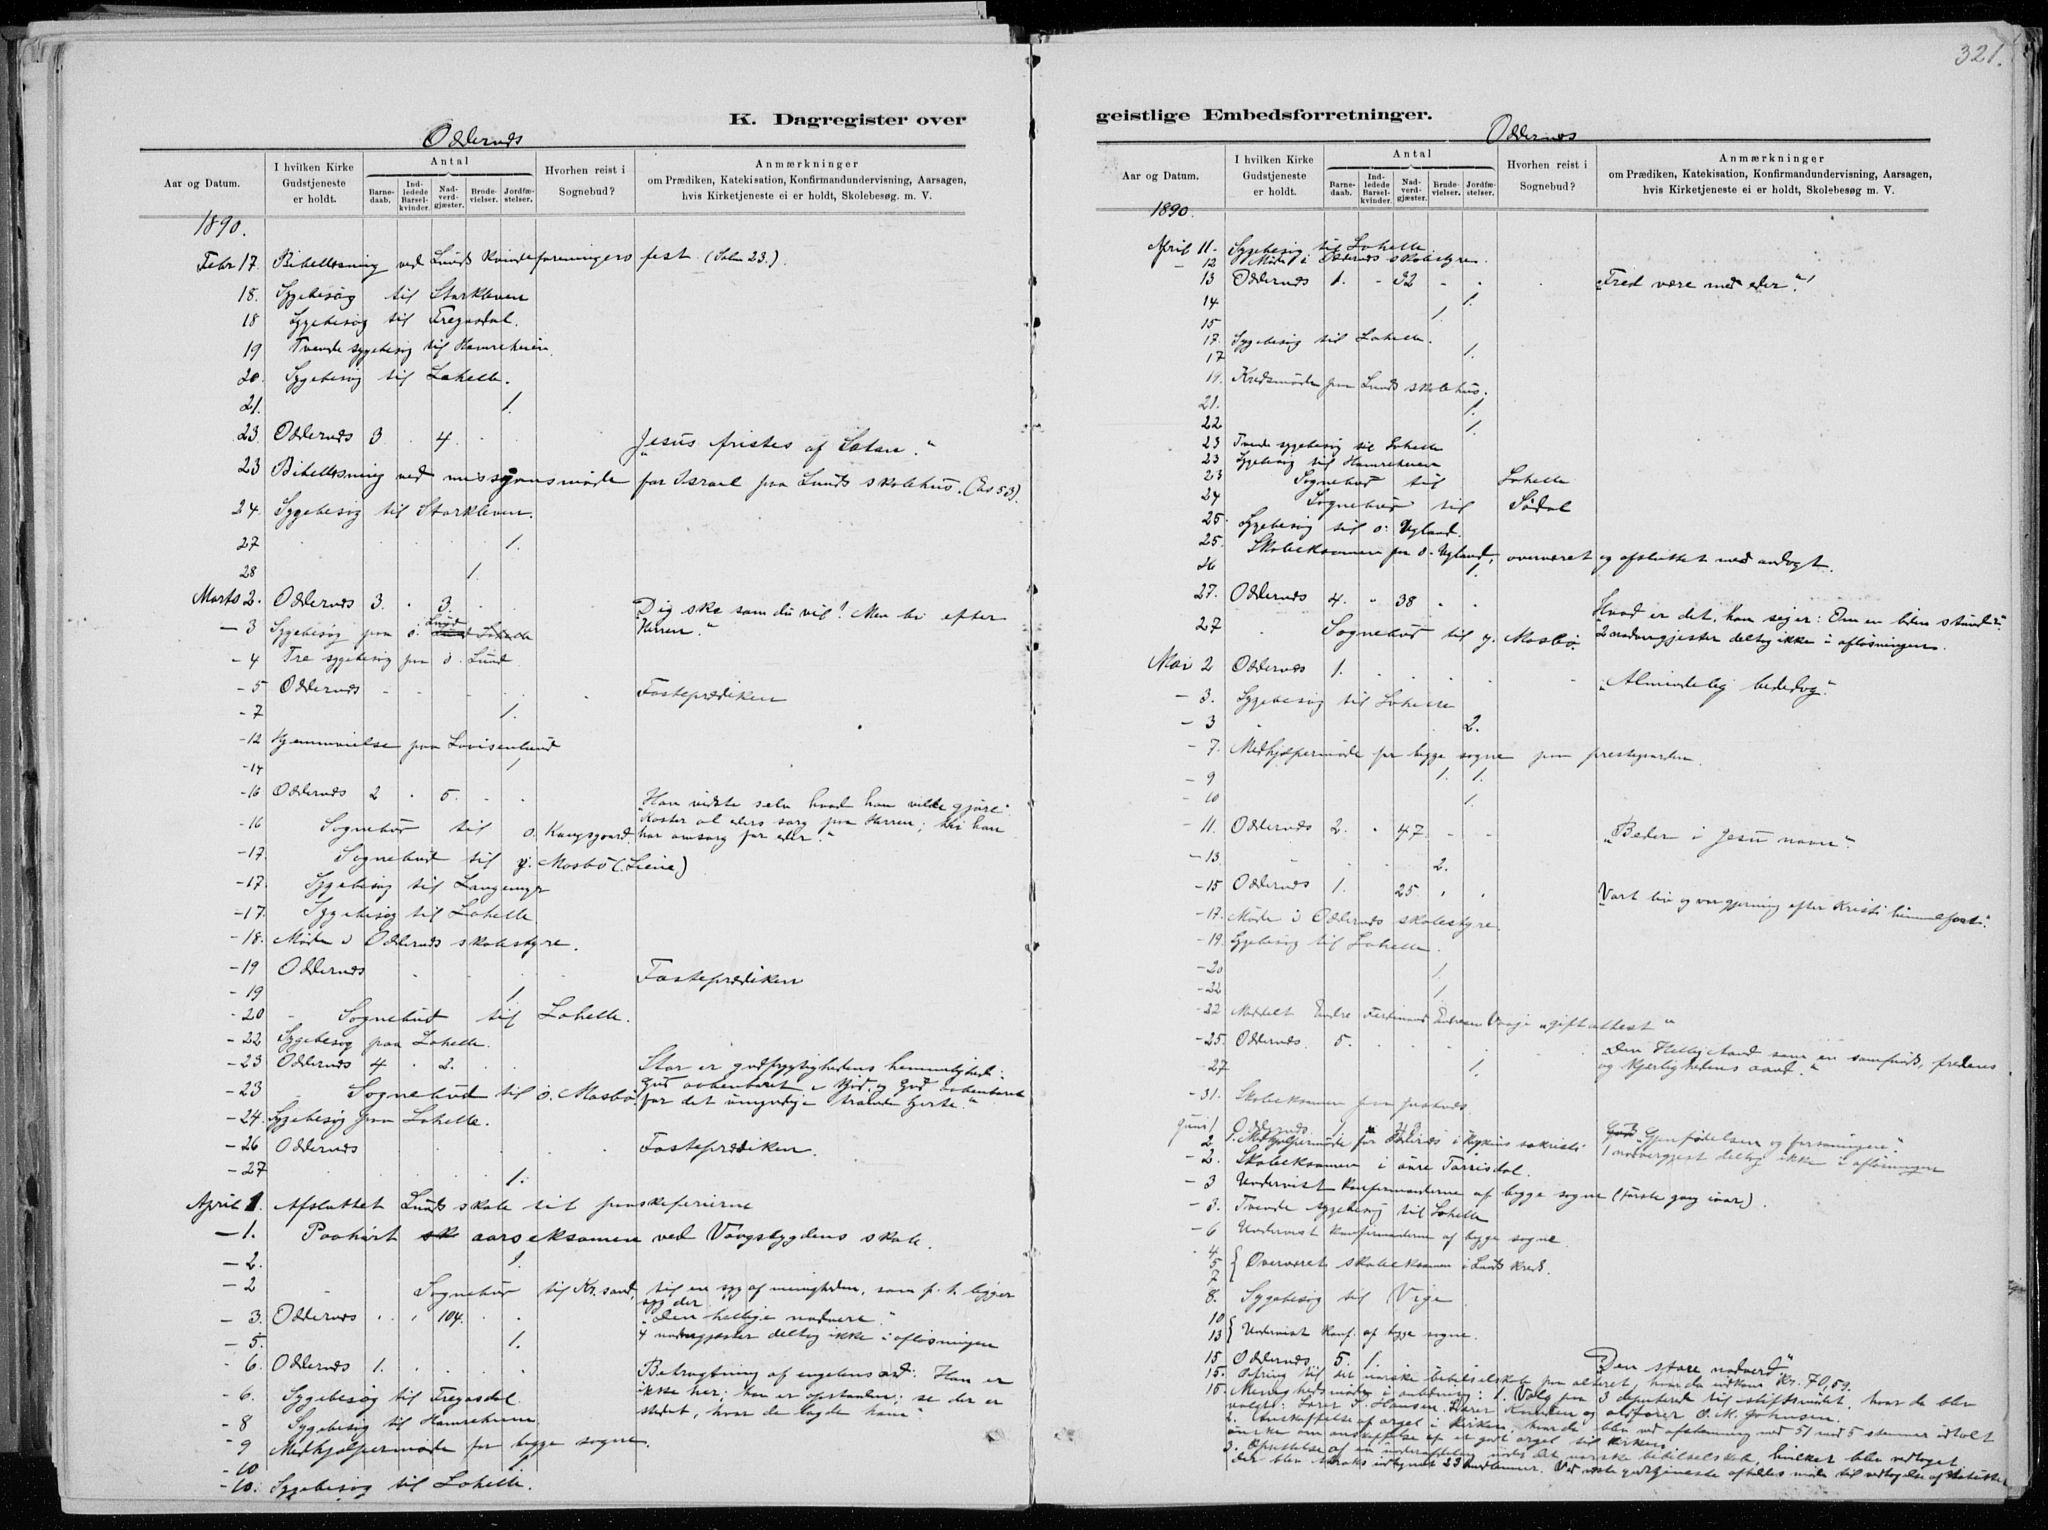 321.
K. Dagregister over
Oddernæs
Aar og Datum.
I hvilken Kirke Gudstjeneste er holdt.
Antal
Barne-daab.
Ind-ledede Barsel-kvinder.
Nad-verd-gjæster.
Brude-vielser.
Jordfæ-stelser.
Hvorhen reist i Sognebud?
Anmærkninger
om Prædiken, Katekisation, Konfirmandundervisning, Aarsagen,
hvis Kirketjeneste ei er holdt, Skolebesøg. m. V.
1890.
Febr 17. Bibellæsning ved Lunds Kvindeforeningers fest. (Salm 23.)
18. Sygebesøg til Starkleven
18 Sygebesøg til Fregosdal.
19 Tvende sygebesøg til Hamreheien.
20. Sygebesøg til Lahelle.
21. 1.
23. Oddernæs 3 . 4. "Jesus fristes af Satan."
23 Bibellæsning ved missionsmøde for Israel paa Lunds skolehus. (Es 53).
24. Sygebesøg til Starkleven.
27 1.
28 1.
Marts 2. Oddernæs 3. . 3. "Dig ske som du vil! Men bi efter
Herren."
- 3 Sygebesøg paa ö. Lund
- 4 Tre sygebesøg paa ö. Lund
- 5 Oddernæs Fasteprædiken
- 7 1.
- 12 Hjemmevielse paa Lovisenlund
- 14 1
- 16 Oddernæs 2 . 5. "Han vidste selv hvad han vilde gjøre".
Kaster al eders sorg paa Herren; thi han
- 16 Sognebud til ö. Kongsgaard. har omsorg for eder."
- 17. Sognebud til y. Mosbö
- 17. Sygebesøg til Langemyr
- 17. Sygebesøg til Lahelle
- 18. Møde i Oddernæs skolestyre.
- 19 Oddernæs Fasteprædiken
- 19 1
- 20 Sognebud til Lahelle.
- 22 Sygebesøg paa Lahelle.
- 23 Oddernæs 4 . 2. Stor er gudfrygtighedens hemmelighed:
Gud aabenbaret i kjød, og Gud aabenbaret
- 23 Sognebud til ö. Mosbö. for det
- 24. Sygebesøg paa Lahelle.
- 26 Oddernæs Fasteprædiken.
- 27 1.
April 1. Afsluttet Lunds skole til paaskeferierne
- 1. Paahørt aarseksamen ved Vaagsbygdens skole.
- 2. 1.
- 2 Sognebud til Kr.sand, til en syg af menigheden, som p. t. ligger
syg der
- 3. Oddernæs . . 104. "Den hellige nadvere".
- 5. 1. 4 nadvergjæster deltog ikke i afløsningen
- 6. Oddernæs 1. Betragtning af engelens ord: Han er
- 6. Sygebesøg til Fregosdal. ikke her: han er opstanden; se der er
- 8 Sygebesøg til Hamreheien. stedet, hvor de lagde ham"
- 9 Medhjælpermøde for begge sogne.
- 10 1
- 10. Sygebesøg til Lahelle.
geistlige Embedsforretninger.
Oddernæs
Aar og Datum.
I hvilken Kirke Gudstjeneste er holdt.
Antal
Barne-daab.
Ind-ledede Barsel-kvinder.
Nad-verd-gjæster.
Brude-vielser.
Jordfæ-stelser.
Hvorhen reist i Sognebud?
Anmærkninger
om Prædiken, Katekisation, Konfirmandundervisning, Aarsagen,
hvis Kirketjeneste ei er holdt, Skolebesøg. m. V.
1890.
April 11. Sygebesøg til Lahelle
- 12 Møde i Oddernæs skolestyre.
13 Oddernæs 1. - 32 "Fred være med eder"!
14 1.
15 1.
17. Sygebesøg til Lahelle.
17 1.
19. Kredsmøde paa Lunds skolehus.
21. 1.
22 1.
23 Tvende sygebesøg til Lahelle
23 Sygebesøg til Hamreheien
23 Sognebud til Lahelle
24 Sognebud til Södal
25. Sygebesøg til ö. Vegland.
25. Skoleeksamen paa ö. Vegland, overværet og afsluttet med andagt.
26 1.
27. Oddernæs 4. " 38 " Hvad er det, han siger: Om en liden stund?"
27 Sognebud til y. Mosbö. 2 nadvergjæster deltog ikke i afløsningen.
Mai 2 Oddernæs 1. "Almindelig bededag".
- 3. Sygebesøg til Lahelle
- 3 2.
- 7. Medhjælpermøde for begge sogne paa prestegaarden.
- 9 1. 1.
- 10 1.
- 11. Oddernæs 2. " 47 "Beder i Jesu navn".
- 13. 2.
- 15 Oddernæs 1. 25 Vort liv og vor gjerning efter Kristi himmelfart.
- 17. Møde i Oddernæs skolestyre
- 19. Sygebesøg til Lahelle.
- 20 1.
- 22 1
- 22 Meddelt Endre Ferdinand Endresen Vaage "giftattest"
- 25. Oddernæs. 5. "Den Hellig Aand som en samfunds, fredens
- 27 1. og kjærlighedens aand."
- 31. Skoleeksamen paa
Juni 1 Oddernæs Gjenfødelsen og forsoningen".
2. Medhjælpermøde for Oddernæs i Kirkens sakristi 1 nadvergjest deltog ikke i afløsningen
- 2. Skoleeksamen i övre Torrisdal.
- 3 Undervist konfirmanderne af begge sogne (første gang iaar).
- 3. Tvende sygebesøg til Lahelle
- 6 Undervist konfirmanderne af begge sogne.
- 4
5 { Overværet skoleeksamen i Lunds kreds.
7
8. Sygebesøg til Vige
10
13 { Undervist konf. af begge sogne.
15 Oddernæs 5. 1. "Den store nadverd"
15. Ofring til det norske bibelselskab paa alteret, hvor da indkom Kr. 70,59.
15 Menighedsmøde i anledning: 1. Valg paa 3 deputerede til stiftsmødet, hvor da blev
valgt: Lærer S. Hansen, Lærer Knudsen og ordfører O. M. Johnsen.
2. Anskaffelse af orgel i kirken, hvor da blev ved afstemning med 51 mod 5 stemmer udtalt
ønske om anskaffelse af et godt orgel til kirken.
3. Oprettelse af en underafdeling under det norske bibelselskab, hvilket blev vedtaget
der blev straks indtegnet 23 medlemmer. Ved næste gudstjeneste afholdes møde til vedtagelse af statutter